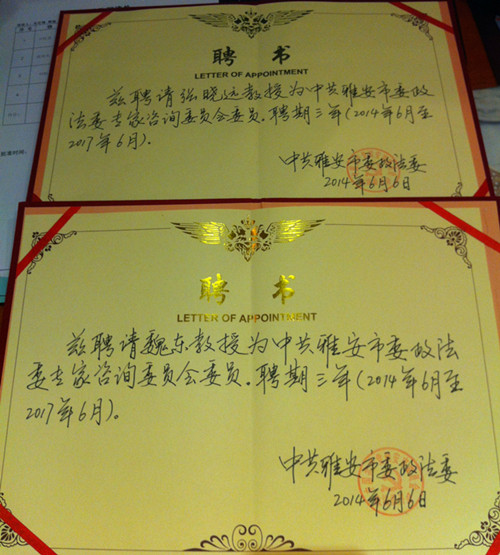 聘 书
LETTER OF APPOINTMENT
兹聘请张晓远教授为中共雅安市委政
法委专家咨询委员会委员。聘期三年(2014年6月至
2017年6月)。
中共雅安市委政法委
2014年6月6日
聘 书
LETTER OF APPOINTMENT
兹聘请魏东教授为中共雅安市委政法
委专家咨询委员会委员。聘期三年(2014年6月至
2017年6月)。
中共雅安市委政法委
2014年6月6日